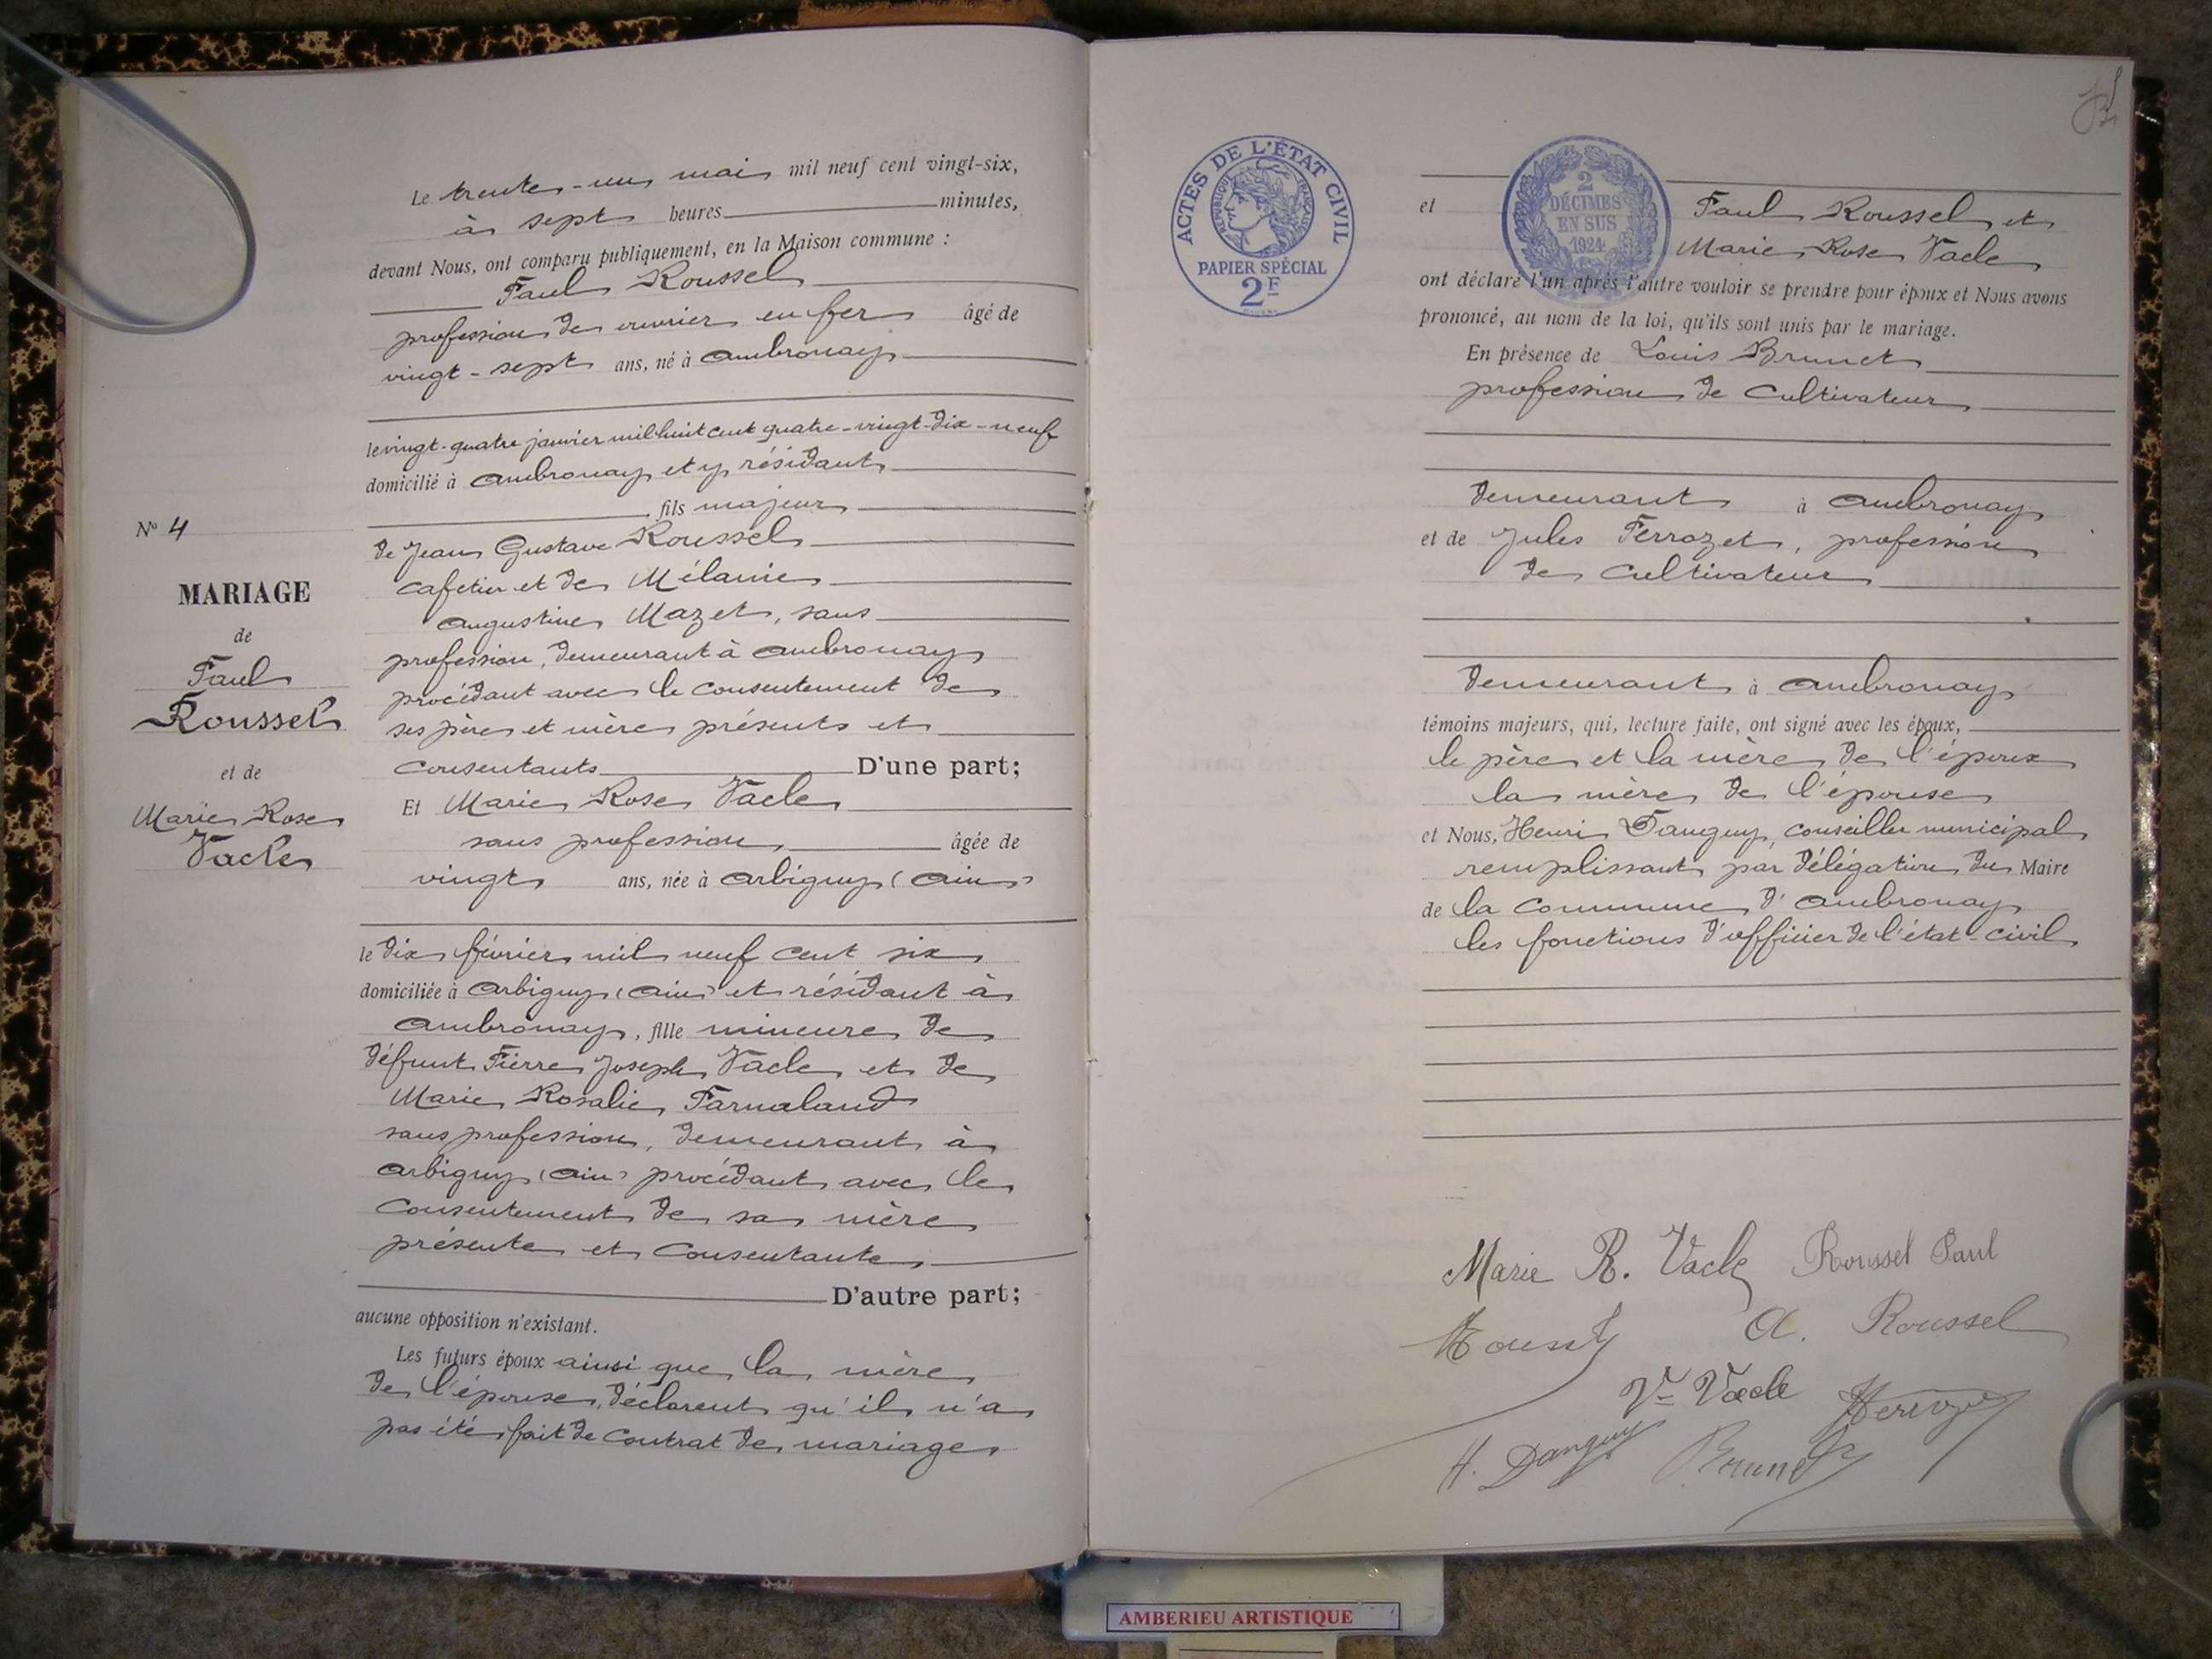 N° 4
MARIAGE
de
Paul
Roussel
et de
Marie Rose
Vacle
Le trente-un mai mil neuf cent vingt-six,
à sept heures minutes,
devant Nous, ont comparu publiquement, en la Maison commune :
Paul Roussel
profession de ouvrier en fer âgé de
vingt-sept ans, né à Ambronay
le vingt-quatre janvier mil huit cent quatre-vingt-dix-neuf
domicilié à Ambronay et y résidant
fils majeur
de Jean Gustave Roussel
cafetier et de Mélanie
Augustine Mazet, sans
profession, demeurant à Ambronay
procédant avec le consentement de
ses père et mère présents et
consentants D'une part;
Et Marie Rose Vacle
sans profession, âgée de
vingt ans, née à Arbigny (Ain)
le dix février mil neuf cent six
domiciliée à Arbigny (Ain) et résidant à
Ambronay, fille mineure de
défunt Pierre Joseph Vacle et de
Marie Rosalie Parnaland
sans profession, demeurant à
Arbigny (Ain) procédant avec le
consentement de sa mère
présente et consentante
D'autre part;
aucune opposition n'existant.
Les futurs époux ainsi que la mère
de l'épouse, déclarent qu'il n'a
pas été fait de contrat de mariage
ACTES DE L'ÉTAT CIVIL
RÉPUBLIQUE FRANÇAISE
PAPIER SPÉCIAL
2F
2
DÉCIMES
EN SUS
1924
et Paul Roussel et
Marie Rose Vacle
ont déclaré l'un après l'autre vouloir se prendre pour époux et Nous avons
prononcé, au nom de la loi, qu'ils sont unis par le mariage.
En présence de Louis Brunet
profession de cultivateur
demeurant à Ambronay
et de Jules Ferrozet, profession
de cultivateur
demeurant à Ambronay
témoins majeurs, qui, lecture faite, ont signé avec les époux,
le père et la mère de l'époux
la mère de l'épouse
et Nous, Henri Danguy, conseiller municipal
remplissant par délégation du Maire
de la commune d'Ambronay
les fonctions d'officier de l'état-civil
Marie R. Vacle Roussel Paul
A. Roussel
Vve Vacle
H. Danguy Brunet
AMBERIEU ARTISTIQUE